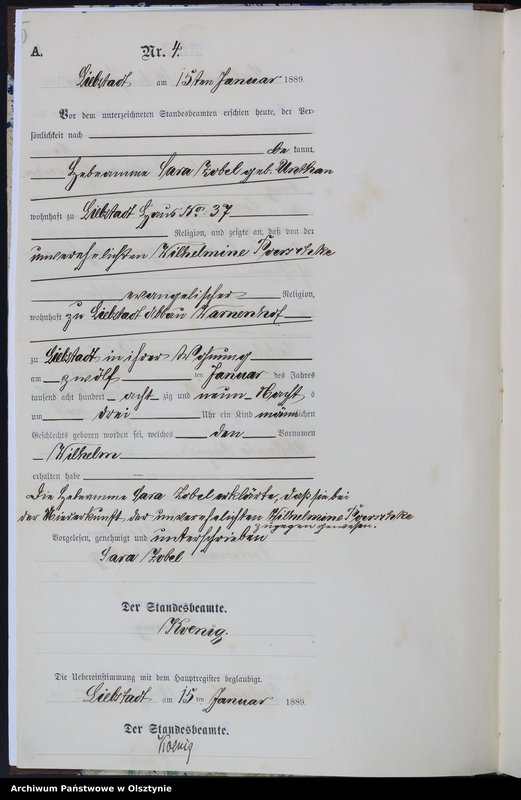 A.
Nr. 4.
Liebstadt am 15ten Januar 1889.
Vor dem unterzeichneten Standesbeamten erschien heute, der Per-
sönlichkeit nach
be kannt,
Hebeamme Sara Zobel geb.
wohnhaft zu Liebstadt Haus No. 37
Religion, und zeigte an, daß von der
unverehelichten Wilhelmine
evangelischer Religion,
wohnhaft zu Liebstadt Abbau
zu Liebstadt in ihrer Wohnung
am zwölf ten Januar des Jahres
tausend acht hundert acht zig und neun Nachts
um drei Uhr ein Kind männlichen
Geschlechts geboren worden sei, welches den Vornamen
Wilhelm
erhalten habe
Die Hebeamme Sara Zobel erklärte, daß sie bei
der Niederkunft der unverehelichten Wilhelmine
zugegen gewesen.
Vorgelesen, genehmigt und unterschrieben
Sara Zobel
Der Standesbeamte.
Koenig.
Die Uebereinstimmung mit dem Hauptregister beglaubigt.
Liebstadt am 15 ten Januar 1889.
Der Standesbeamte.
Koenig
Archiwum Państwowe w Olsztynie